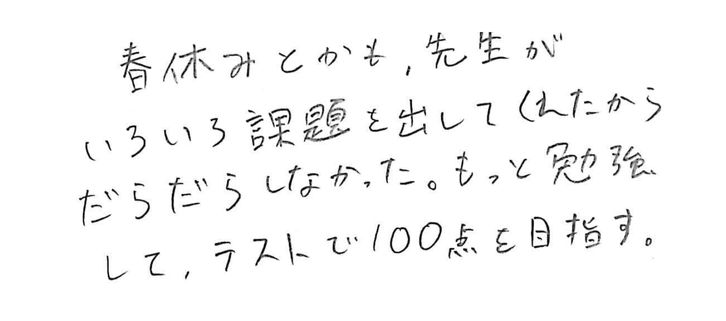 春休みとかも,先生が
いろいろ課題を出してくれたから
だらだらしなかった。もっと勉強
して,テストで100点を目指す。